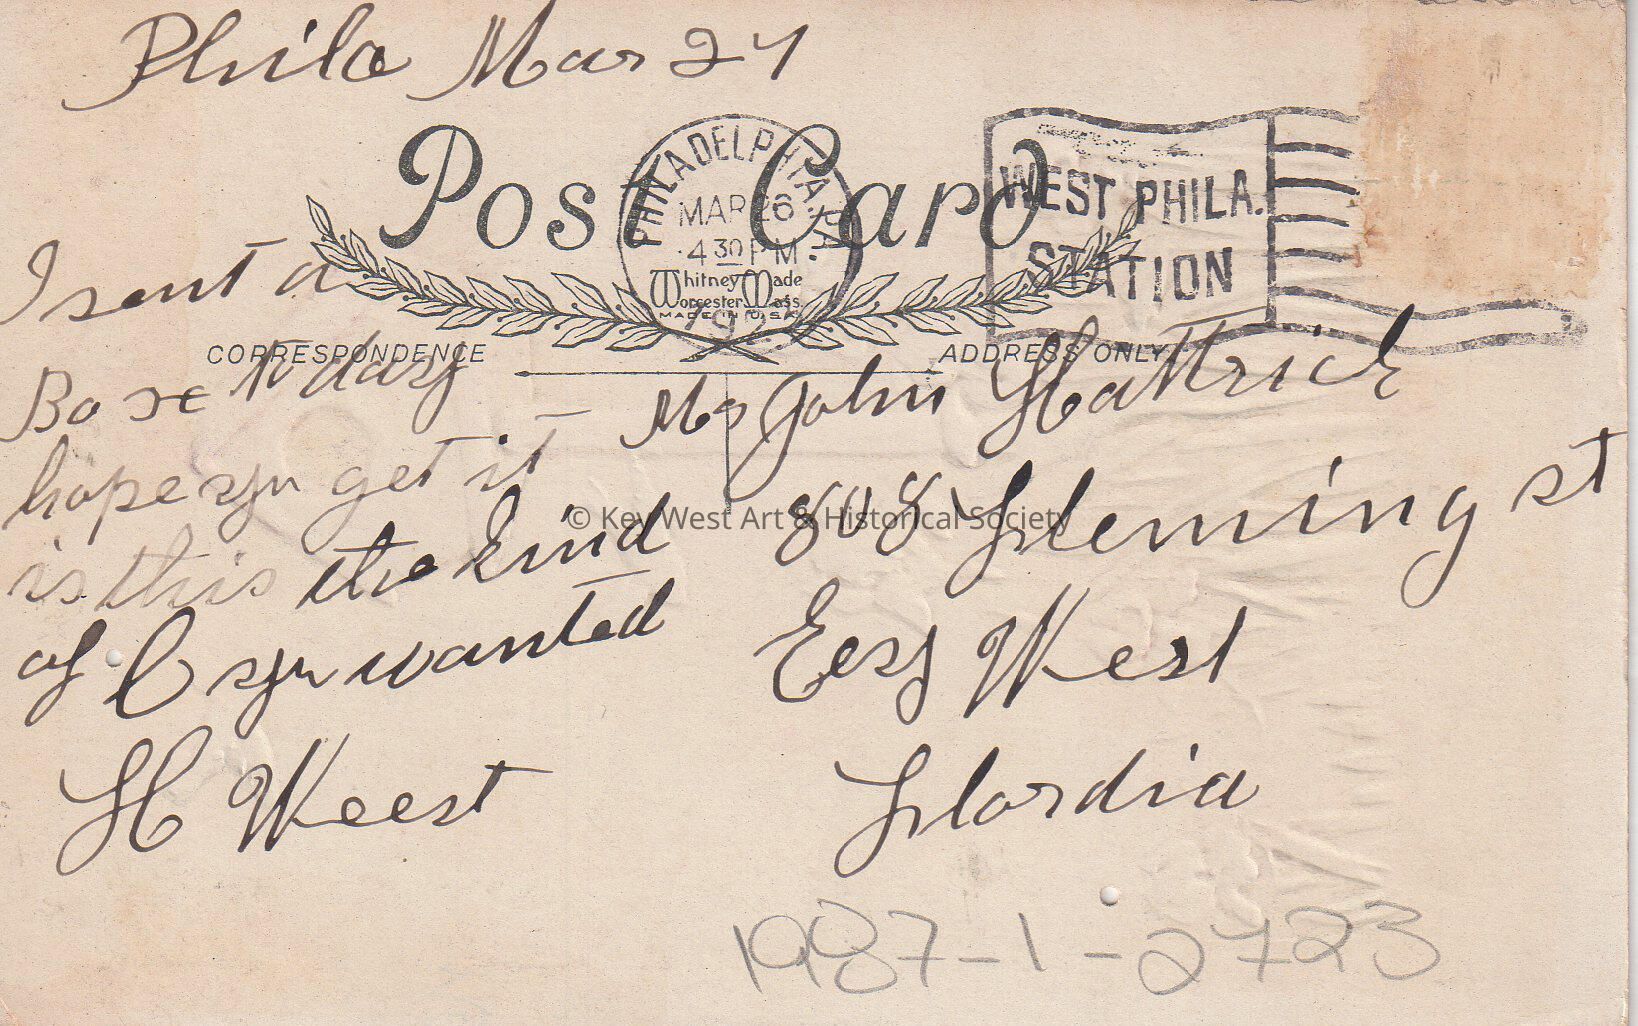 Phila Mar 27
Post Card
PHILADELPHIA, PA.
MAR 26
4 30 PM
192
Whitney Made
Worcester, Mass.
MADE IN U.S.A.
WEST PHILA.
STATION
CORRESPONDENCE
ADDRESS ONLY
I sent a
Boxe to day
hope yu get it
is this the kind
of C yu wanted
H C Weest
Mr John Hattrick
808 Fleming st
Key West
Flordia
© Key West Art & Historical Society
1987-1-2723